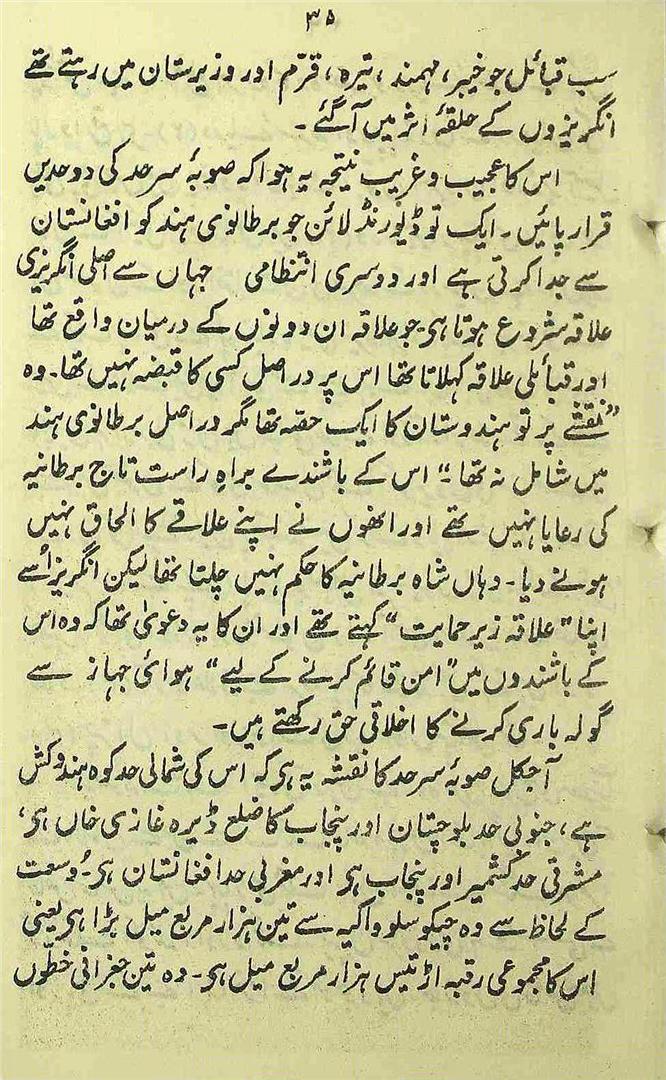 ۳۵
سب قبائل جو خیبر، مہمند، تیرہ، قرّم اور وزیرستان میں رہتے تھے
انگریزوں کے حلقۂ اثر میں آگئے۔
اس کا عجیب و غریب نتیجہ یہ ہوا کہ صوبۂ سرحد کی دو حدیں
قرار پائیں۔ ایک تو ڈیورنڈ لائن جو برطانوی ہند کو افغانستان
سے جدا کرتی ہے اور دوسری انتظامی جہاں سے اصلی انگریزی
علاقہ شروع ہوتا ہی۔ جو علاقہ ان دونوں کے درمیان واقع تھا
اور قبائلی علاقہ کہلاتا تھا اس پر دراصل کسی کا قبضہ نہیں تھا۔ وہ
”نقشے پر تو ہندوستان کا ایک حصّہ تھا مگر دراصل برطانوی ہند
میں شامل نہ تھا۔“ اس کے باشندے براہِ راست تاج برطانیہ
کی رعایا نہیں تھے اور انھوں نے اپنے علاقے کا الحاق نہیں
ہونے دیا۔ وہاں شاہ برطانیہ کا حکم نہیں چلتا تھا لیکن انگریز اُسے
اپنا ”علاقہ زیر حمایت“ کہتے تھے اور ان کا یہ دعویٰ تھا کہ وہ اس
کے باشندوں میں ”امن قائم کرنے کے لیے“ ہوائی جہاز سے
گولہ باری کرنے کا اخلاقی حق رکھتے ہیں۔
آجکل صوبۂ سرحد کا نقشہ یہ ہی کہ اس کی شمالی حد کوہ ہندوکش
ہے، جنوبی حد بلوچستان اور پنجاب کا ضلع ڈیرہ غازی خاں ہی،
مشرقی حد کشمیر اور پنجاب ہی اور مغربی حد افغانستان ہی۔ وُسعت
کے لحاظ سے وہ چیکوسلوواکیہ سے تین ہزار مربع میل بڑا ہی یعنی
اس کا مجموعی رقبہ اڑتیس ہزار مربع میل ہی۔ وہ تین جغرافی خطّوں